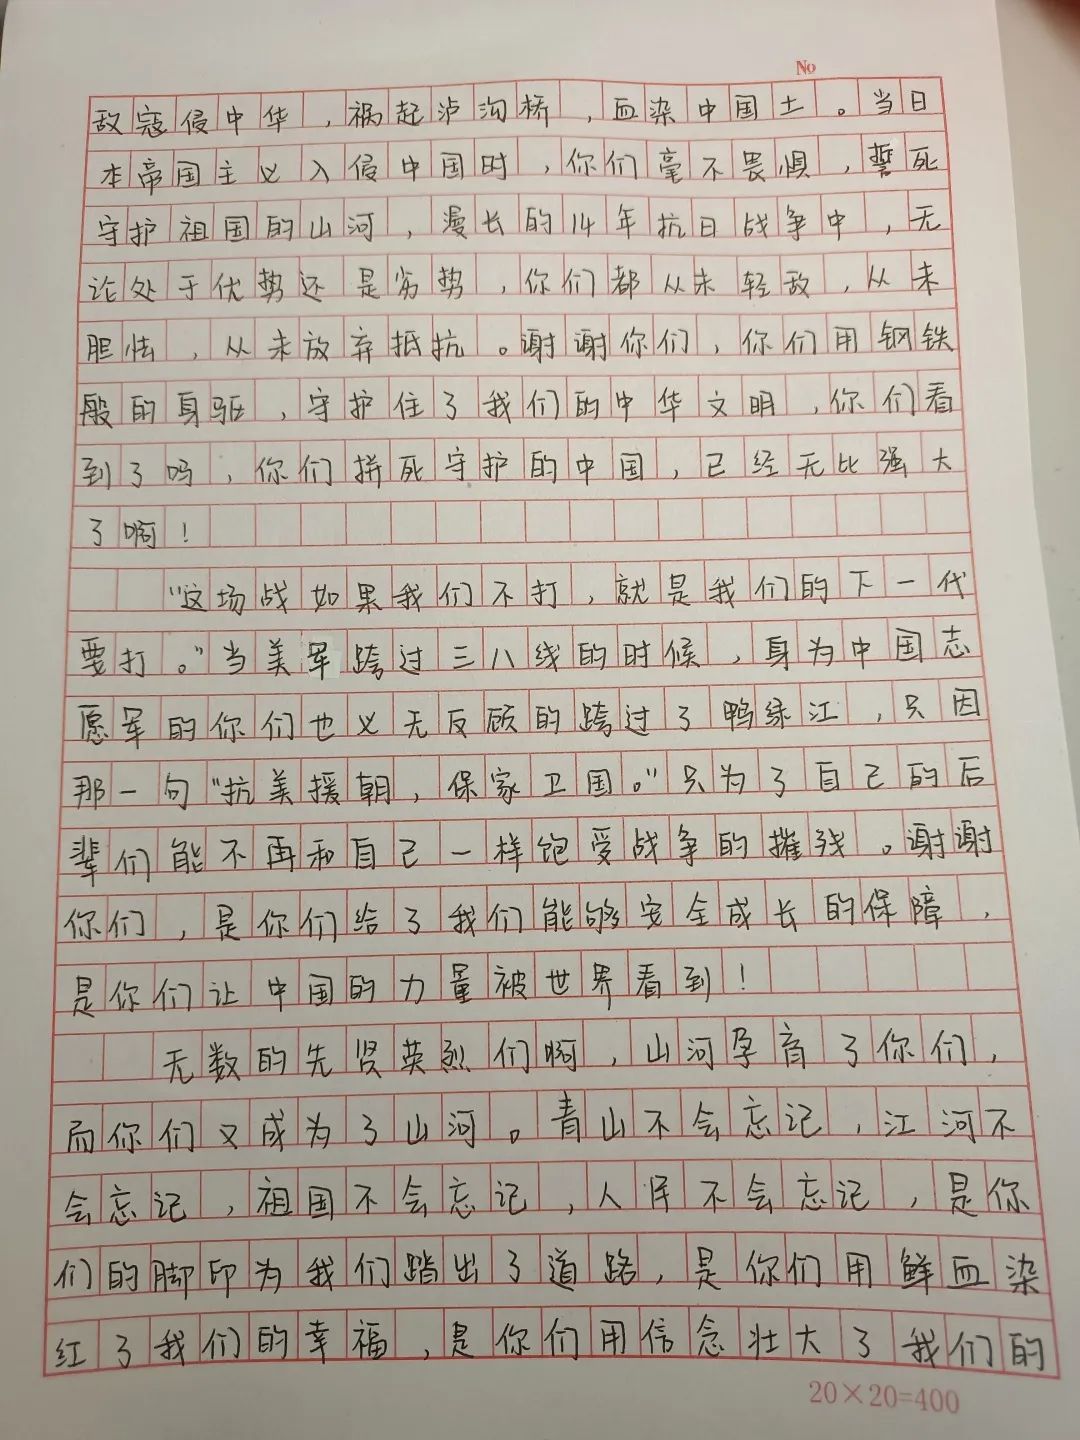 No
敌寇侵中华，祸起泸沟桥，血染中国土。当日
本帝国主义入侵中国时，你们毫不畏惧，誓死
守护祖国的山河，漫长的14年抗日战争中，无
论处于优势还是劣势，你们都从未轻敌，从未
胆怯，从未放弃抵抗。谢谢你们，你们用钢铁
般的身驱，守护住了我们的中华文明，你们看
到了吗，你们拼死守护的中国，已经无比强大
了啊！
“这场战如果我们不打，就是我们的下一代
要打。”当美军跨过三八线的时候，身为中国志
愿军的你们也义无反顾的跨过了鸭绿江，只因
那一句“抗美援朝，保家卫国。”只为了自己的后
辈们能不再和自己一样饱受战争的摧残。谢谢
你们，是你们给了我们能够安全成长的保障，
是你们让中国的力量被世界看到！
无数的先贤英烈们啊，山河孕育了你们，
而你们又成为了山河。青山不会忘记，江河不
会忘记，祖国不会忘记，人民不会忘记，是你
们的脚印为我们踏出了道路，是你们用鲜血染
红了我们的幸福，是你们用信念壮大了我们的
20×20=400